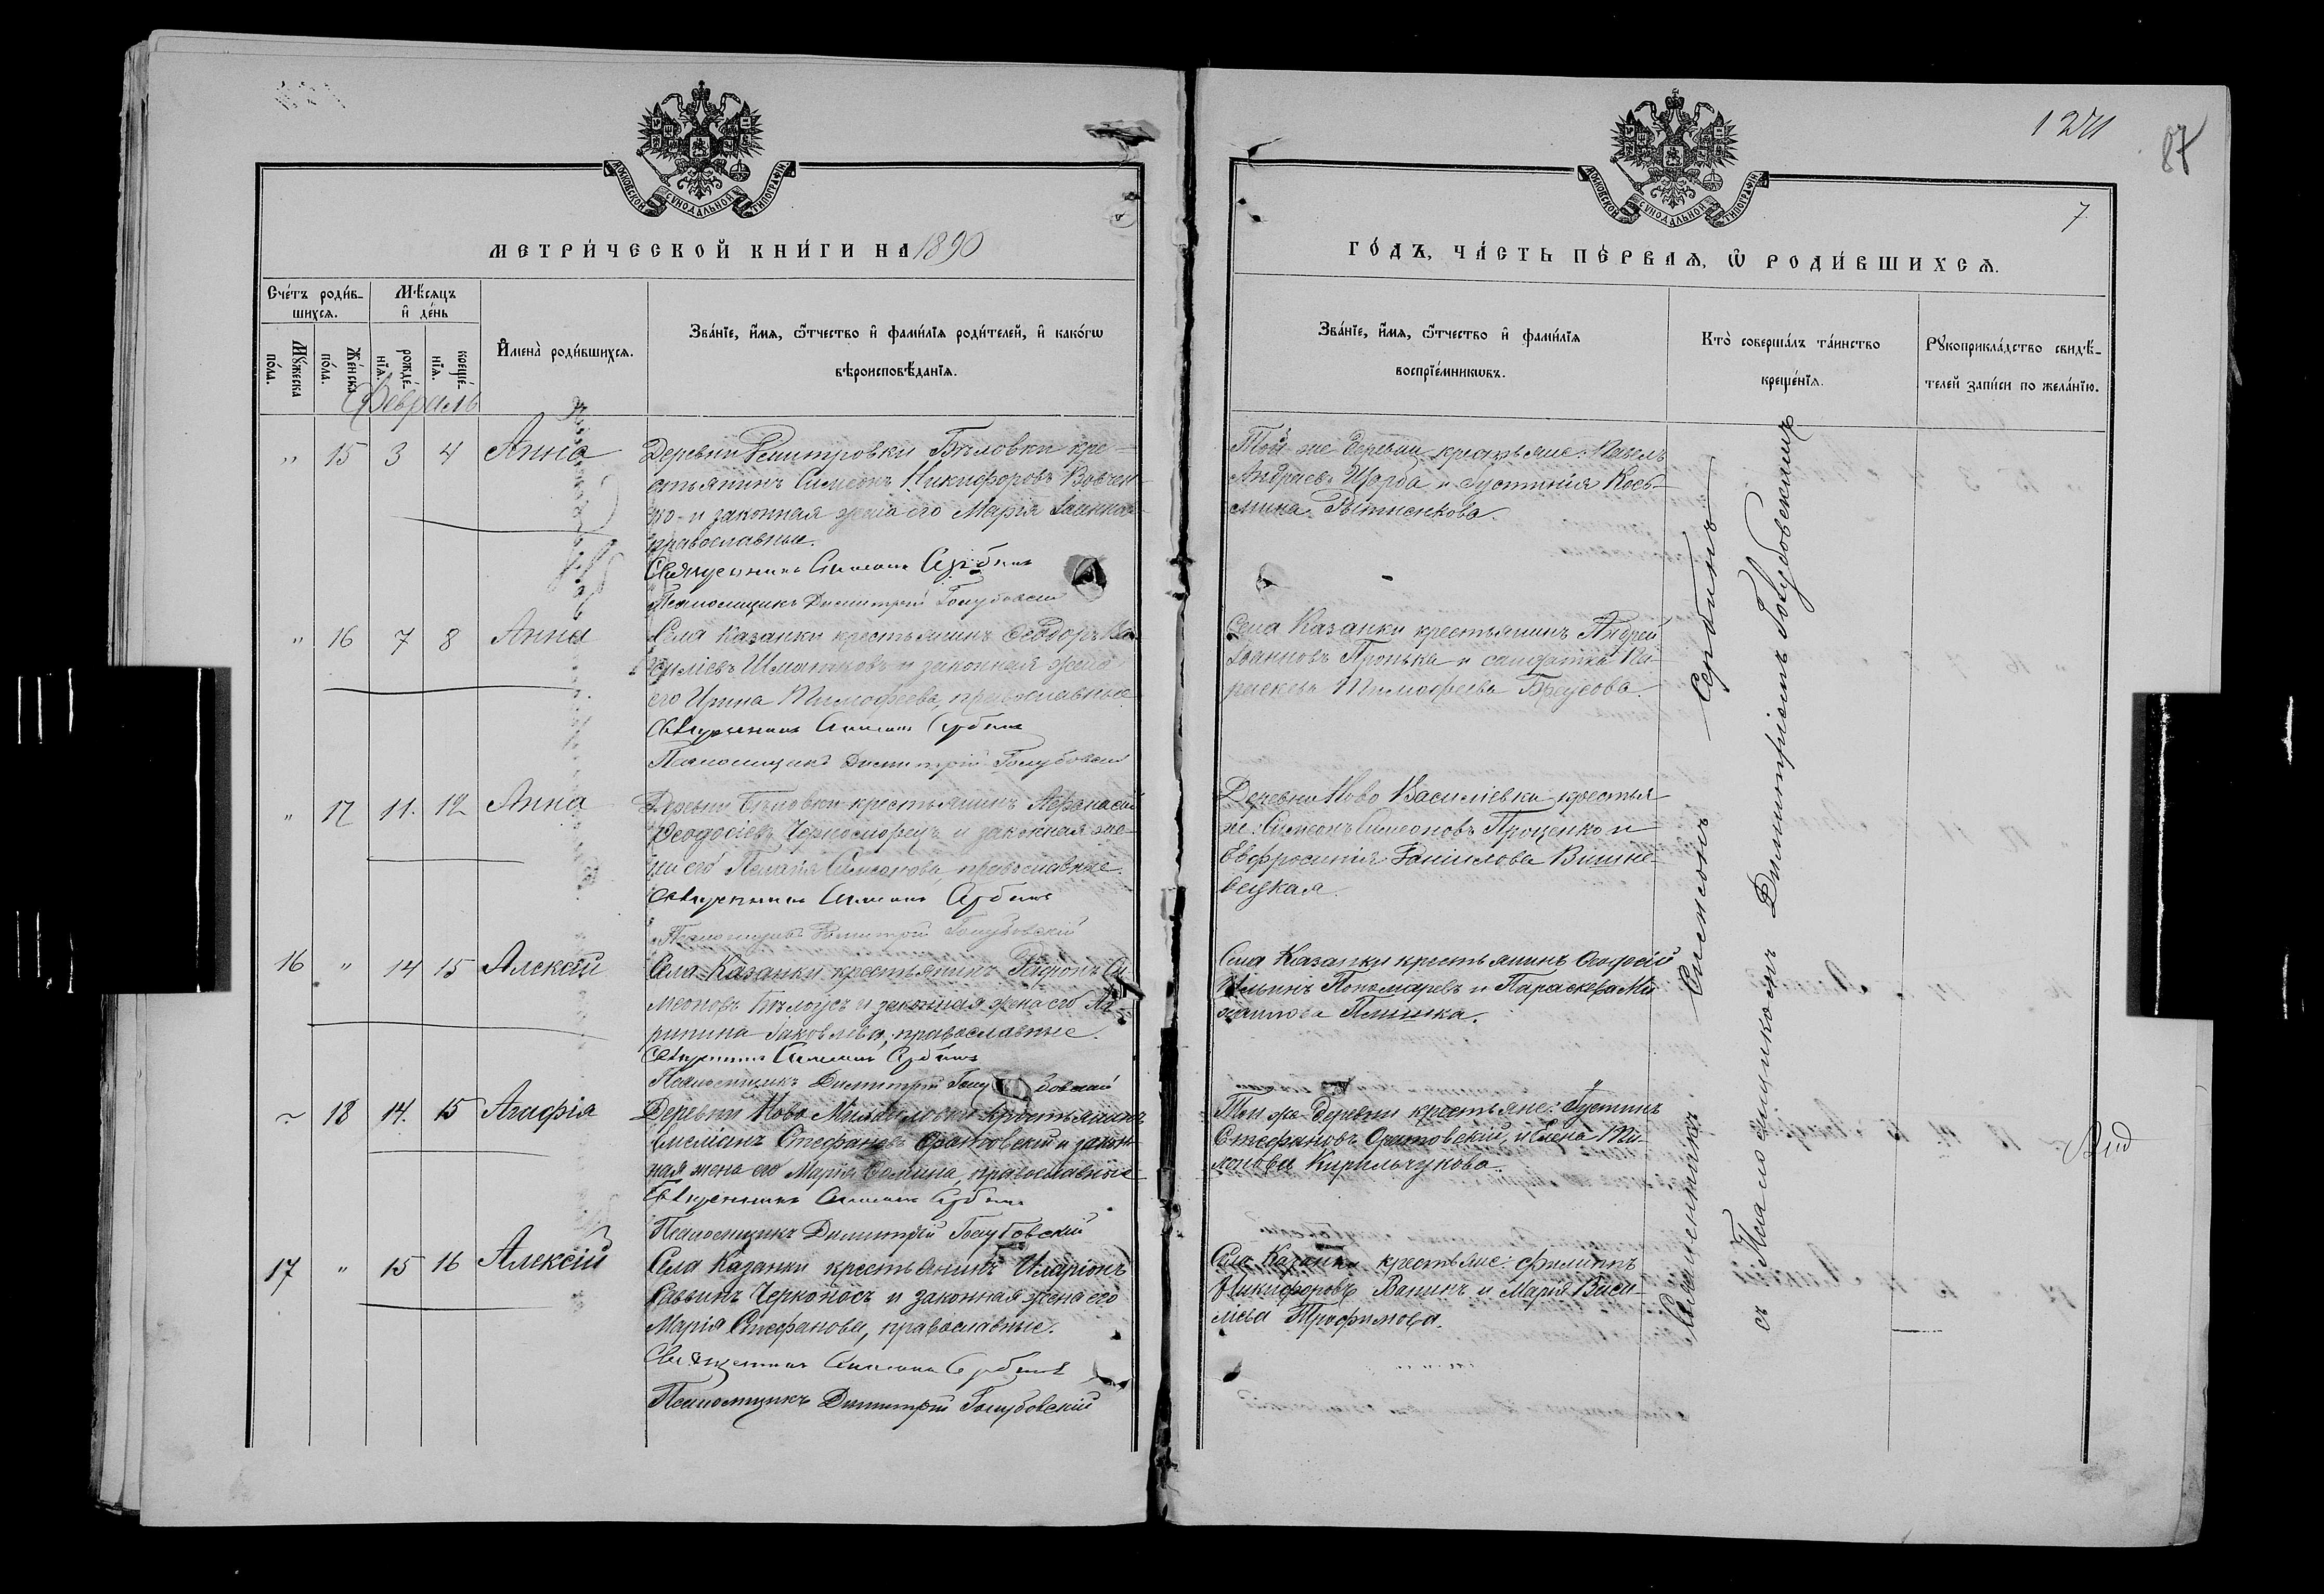 МОСКОВСКОЙ СѴНОДАЛЬНОЙ ТИПОГРАФІИ
МЕТРИ́ЧЕСКОЙ КНИ́ГИ НА 1890
Сче́тъ роди́в-
шихсѧ.
Мꙋ́жеска
по́ла.
Же́нска
по́ла.
Мѣ́сѧцъ
и҆ де́нь
рожде́-
нїѧ.
креще́-
нїѧ.
И҆мена̀ роди́вшихсѧ.
Зва́нїе, и҆́мѧ, ѻ҆́тчество и҆ фами́лїѧ роди́телей, и҆ како́гѡ
вѣроисповѣ́данїѧ.
Февраль
" 15 3 4 Анна
Деревни Димитровки Бѣловки кре-
стьянинъ Симеонъ Никифоровъ Вовчен-
ко и законная жена его Марія
православные.
Священникъ Симеонъ Сербинъ
Псаломщикъ Димитрій Голубовскій
" 16 7 8 Анна
Села Казанки крестьянинъ Ѳеодоръ Ва-
силіевъ и законная жена
его Ирина Тимофеева, православные
Священникъ Симеонъ Сербинъ
Псаломщикъ Димитрій Голубовскій
" 17 11. 12 Анна
Деревни Бѣловки крестьянинъ Афанасій
Ѳеодосіевъ Черноморецъ и законная же-
на его Пелагія Симеонова, православные.
Священникъ Симеонъ Сербинъ
Псаломщикъ Димитрій Голубовскій
16 " 14 15 Алексій
Села Казанки крестьянинъ Родіонъ Си-
меоновъ Бѣлоусъ и законная жена его Аг-
рипина Іаковлева, православные.
Священникъ Симеонъ Сербинъ
Псаломщикъ Димитрій Голубовскій
18 14. 15 Агафія
Деревни Ново крестьянинъ
Стефановъ и закон-
ная жена его Марія православные
Священникъ Симеонъ Сербинъ
Псаломщикъ Димитрій Голубовскій
17 " 15 16 Алексій
Села Казанки крестьянинъ Иларіонъ
Саввинъ Черконосъ и законная жена его
Марія Стефанова, православные.
Священникъ Симеонъ Сербинъ
Псаломщикъ Димитрій Голубовскій
87
7
МОСКОВСКОЙ СѴНОДАЛЬНОЙ ТИПОГРАФІИ
ГО́ДЪ, ЧА́СТЬ ПЕ́РВАѦ, Ѡ҆ РОДИ́ВШИХСѦ.
Зва́нїе, и҆́мѧ, ѻ҆́тчество и҆ фами́лїѧ
воспрїе́мникѡвъ.
Кто̀ соверша́лъ та́инство
креще́нїѧ.
Рꙋкоприкла́дство свидѣ́-
телей за́писи по жела́нїю.
Той же деревни крестьяне: Павелъ
Андреевъ Щорба и Іустинія Кось-
мина
Села Казанки крестьянинъ Андрей
Іоанновъ Пронька и солдатка Па-
раскева Тимофеева Брусова.
Деревни Ново Василіевки крестья-
не: Симеонъ Симеоновъ Проценко и
Евфросинія Даніилова Вишне-
вецкая.
Села Казанки крестьянинъ
Ильинъ Пономаревъ и Параскева Ми-
хаилова
Той же деревни крестьяне: Іустинъ
Стефановъ и Елена Ти-
монова Кирильчукова.
Села Казанки крестьяне: Филиппъ
Никифоровъ Ванинъ и Марія Васи-
ліева Трофимова.
Священникъ Симеонъ Сербинъ
съ Псаломщикомъ Димитріемъ Голубовскимъ